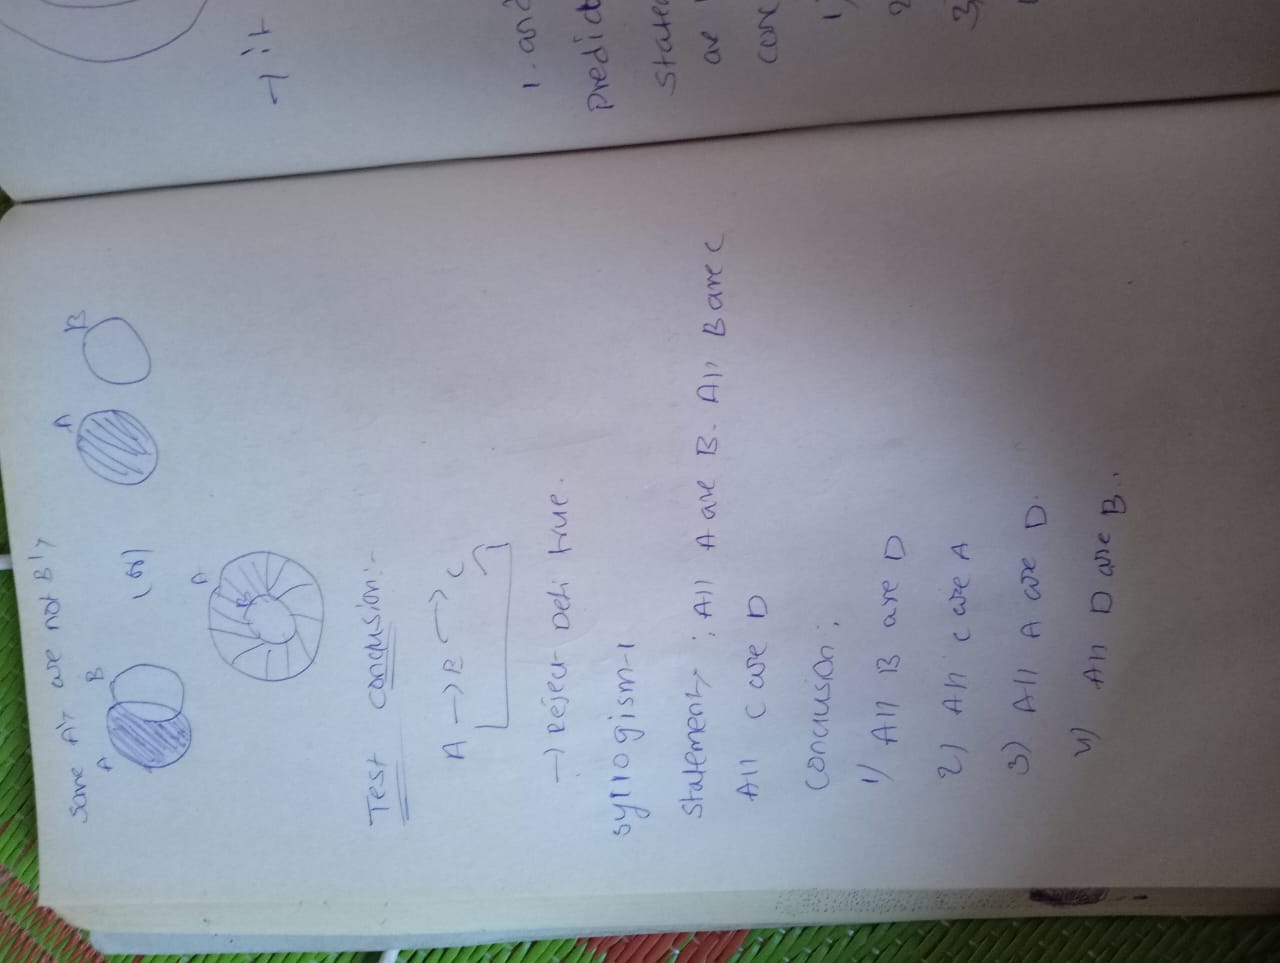 Some A's are not B's
A B (or) A B
A
B
Test conclusion:-
A → B → C
→ Reject Defi true.
Syllogism-1
Statements: All A are B. All B are C
All C are D
Conclusion:
1) All B are D
2) All C are A
3) All A are D.
4) All D are B.
→ it
1. and
predict
state
are
con
1)
2
3)